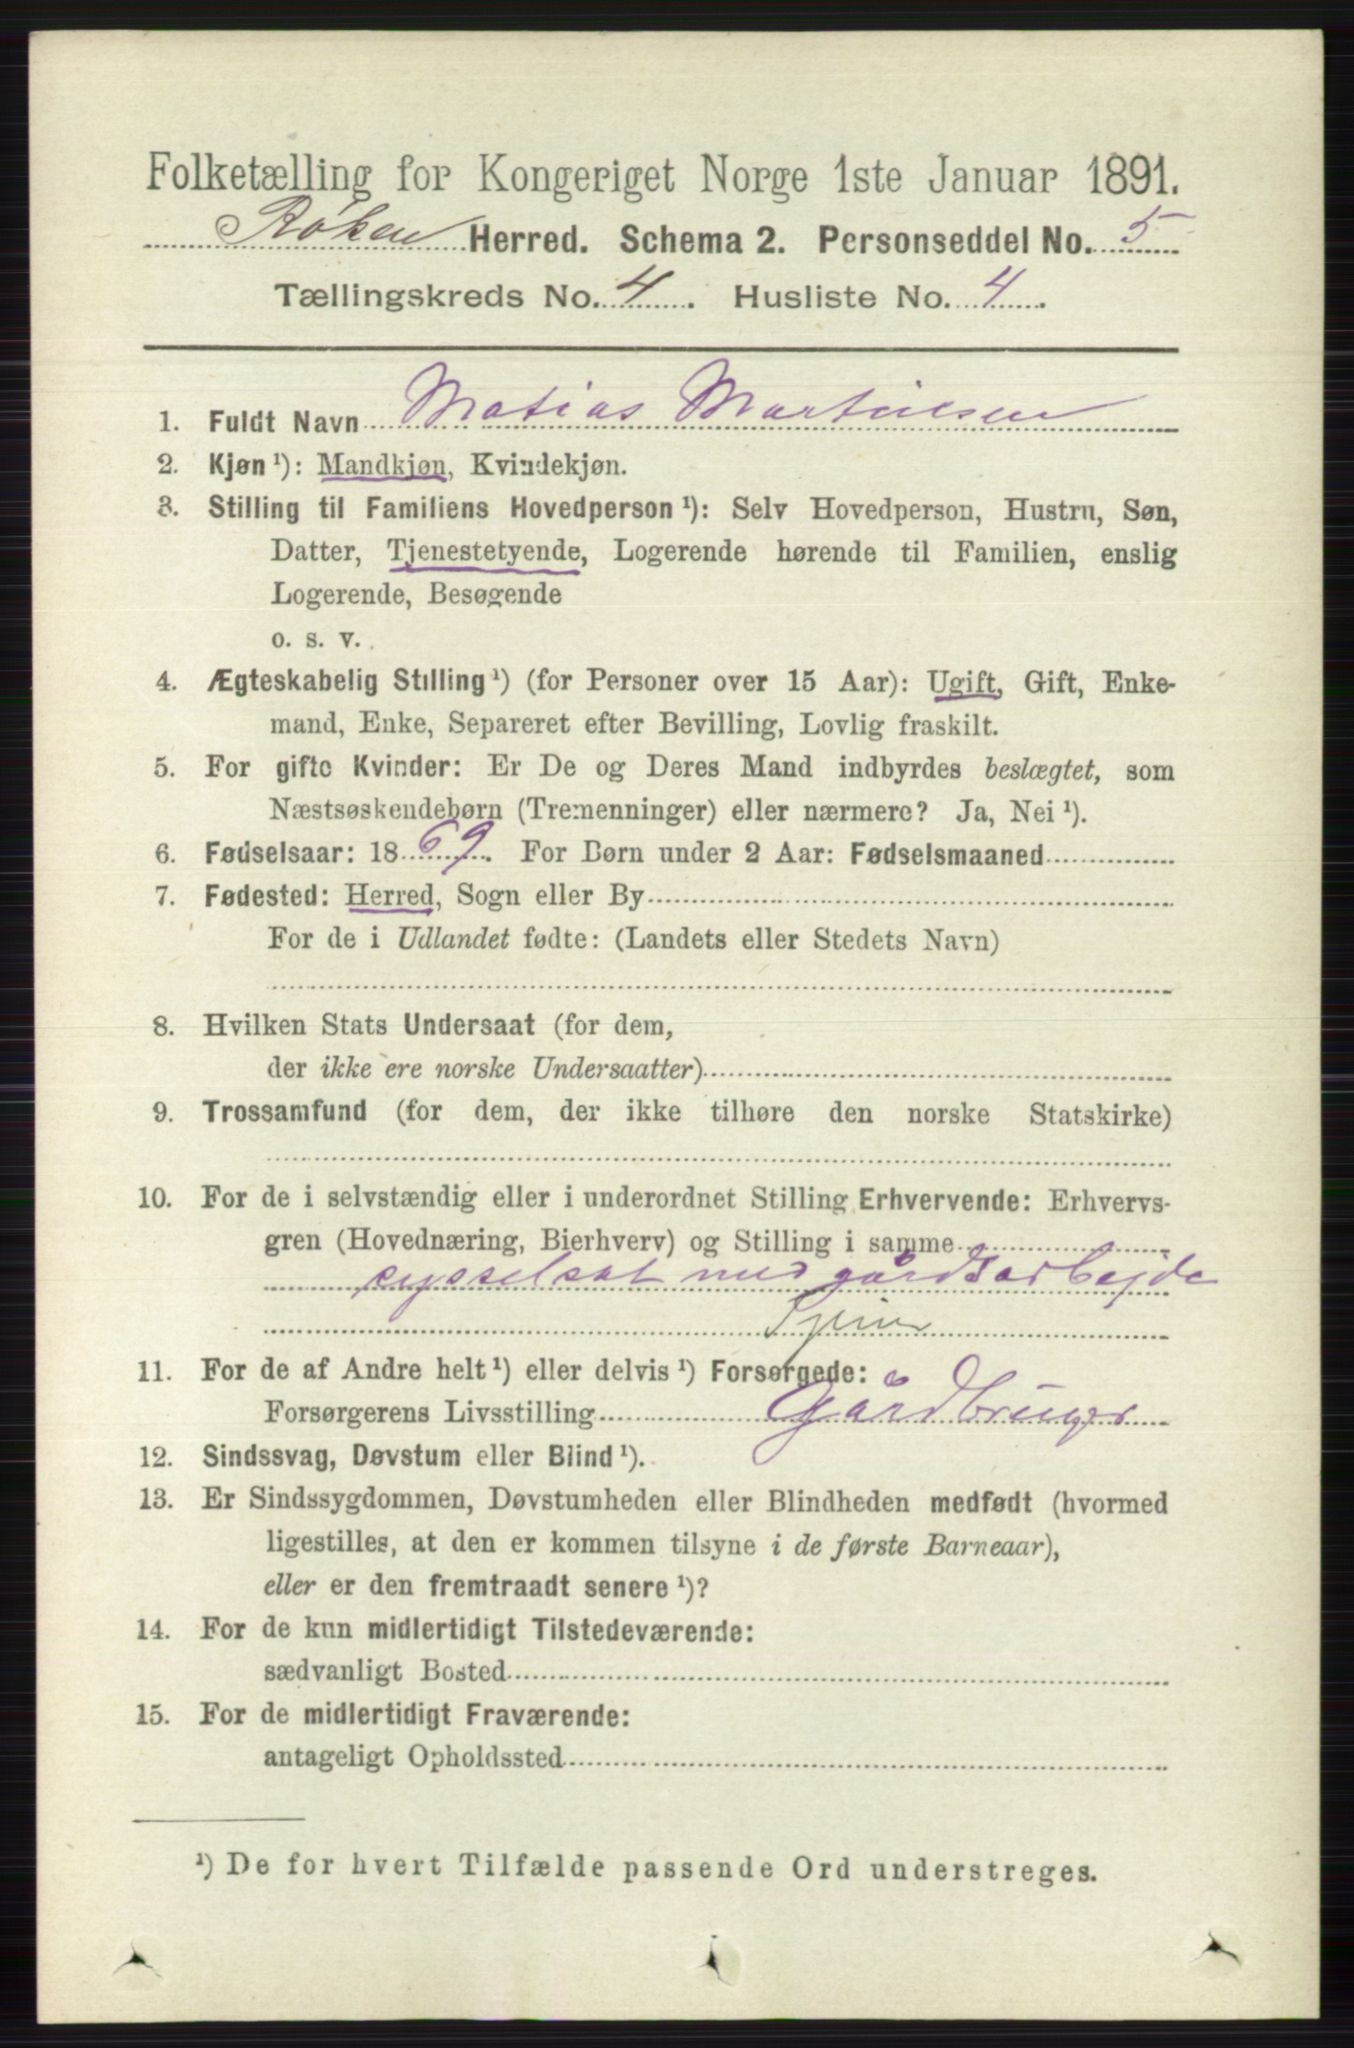 Folketælling for Kongeriget Norge 1ste Januar 1891.
Røken Herred. Schema 2. Personseddel No. 5
Tællingskreds No. 4. Husliste No. 4.
1. Fuldt Navn Matias Martinsen
2. Kjøn ¹): Mandkjøn, Kvindekjøn.
3. Stilling til Familiens Hovedperson ¹): Selv Hovedperson, Hustru, Søn,
Datter, Tjenestetyende, Logerende hørende til Familien, enslig
Logerende, Besøgende
o. s. v.
4. Ægteskabelig Stilling ¹) (for Personer over 15 Aar): Ugift, Gift, Enke-
mand, Enke, Separeret efter Bevilling, Lovlig fraskilt.
5. For gifte Kvinder: Er De og Deres Mand indbyrdes beslægtet, som
Næstsøskendebørn (Tremenninger) eller nærmere? Ja, Nei ¹).
6. Fødselsaar: 1869. For Børn under 2 Aar: Fødselsmaaned
7. Fødested: Herred, Sogn eller By
For de i Udlandet fødte: (Landets eller Stedets Navn)
8. Hvilken Stats Undersaat (for dem,
der ikke ere norske Undersaatter)
9. Trossamfund (for dem, der ikke tilhøre den norske Statskirke)
10. For de i selvstændig eller i underordnet Stilling Erhvervende: Erhvervs-
gren (Hovednæring, Bierhverv) og Stilling i samme
sysselsat med gårdsarbejde
Tjener
11. For de af Andre helt ¹) eller delvis ¹) Forsørgede:
Forsørgerens Livsstilling Gårdbruger
12. Sindssvag, Døvstum eller Blind ¹).
13. Er Sindssygdommen, Døvstumheden eller Blindheden medfødt (hvormed
ligestilles, at den er kommen tilsyne i de første Barneaar),
eller er den fremtraadt senere ¹)?
14. For de kun midlertidigt Tilstedeværende:
sædvanligt Bosted
15. For de midlertidigt Fraværende:
antageligt Opholdssted
¹) De for hvert Tilfælde passende Ord understreges.